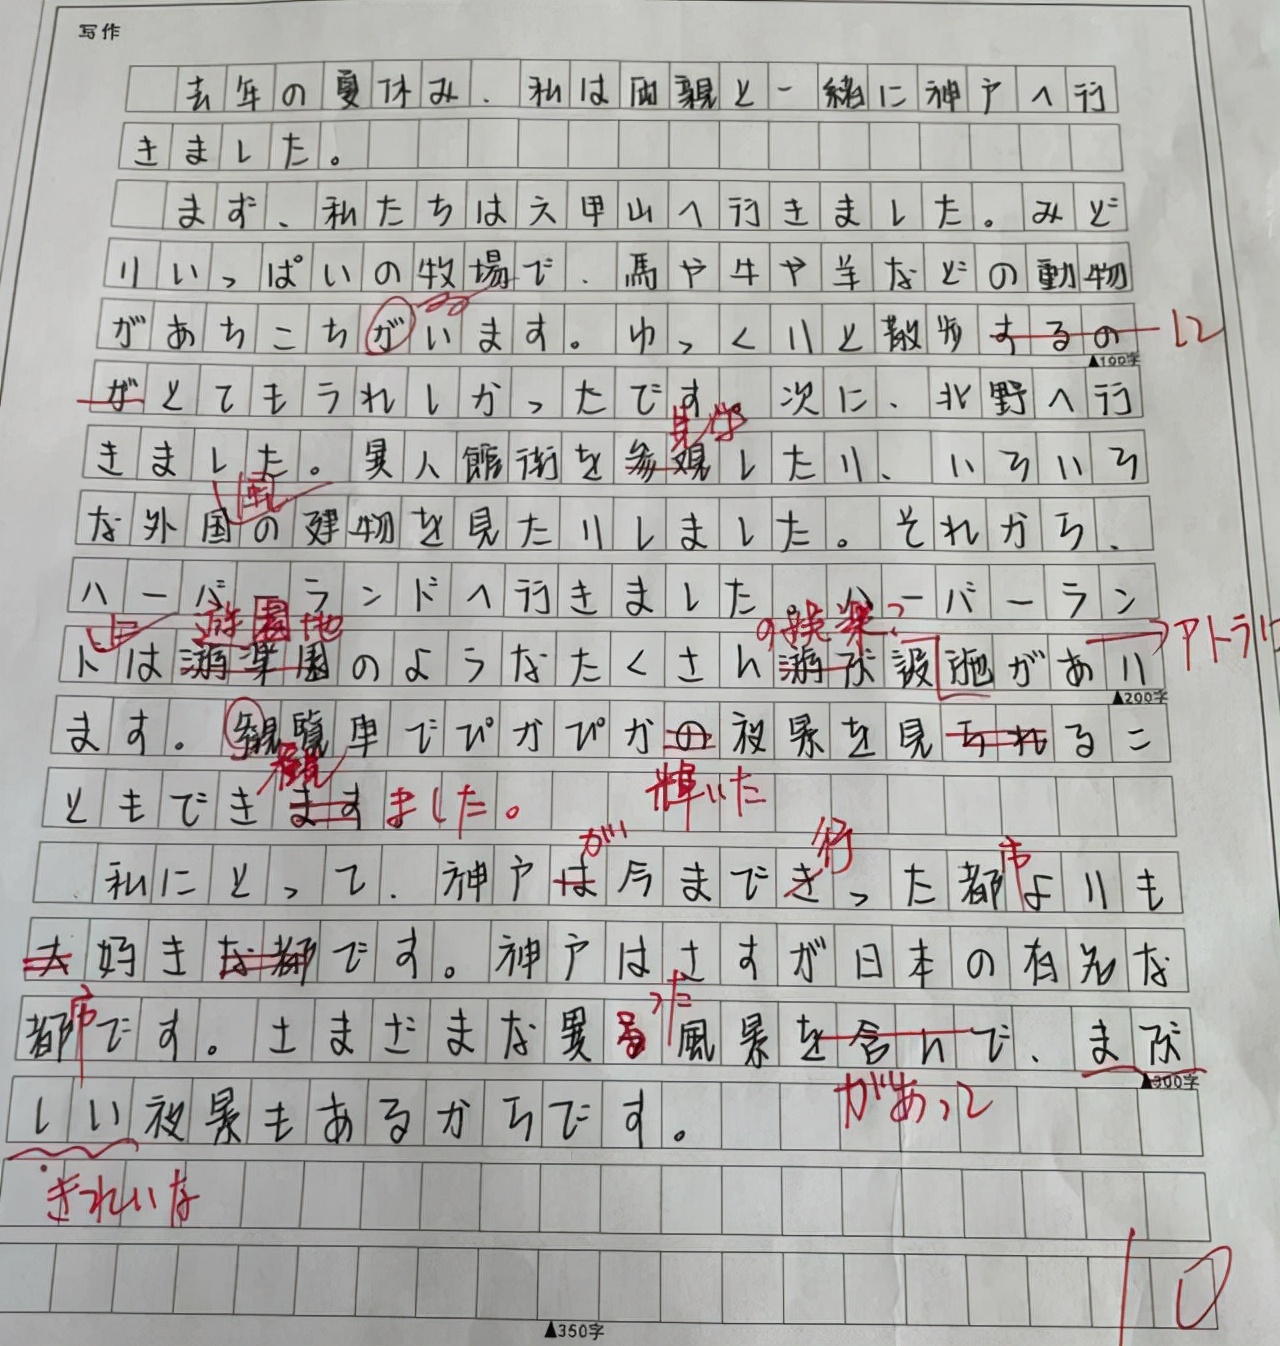 写作
去年の夏休み、私は両親と一緒に神戸へ行
きました。
まず、私たちは六甲山へ行きました。みど
りいっぱいの牧場で、馬や牛や羊などの動物
があちこちがいます。ゆっくりと散歩するの
して
▲100字
がとてもうれしかったです。次に、北野へ行
見学
きました。異人館街を参観したり、いろいろ
風
な外国の建物を見たりしました。それから、
ハーバーランドへ行きました。ハーバーラン
に 遊園地 の娯楽
アトラ
ドは游楽園のようなたくさん游ぶ設施があり
▲200字
ます。観覧車でぴかぴかの夜景を見られるこ
観
輝いた
ともできますました。
が 行 市
私にとって、神戸は今まできった都よりも
大好きな都です。神戸はさすが日本の有名な
市 った
都です。さまざまな異る風景を含んで、まぶ
があって
▲300字
しい夜景もあるからです。
きれいな
10
▲350字